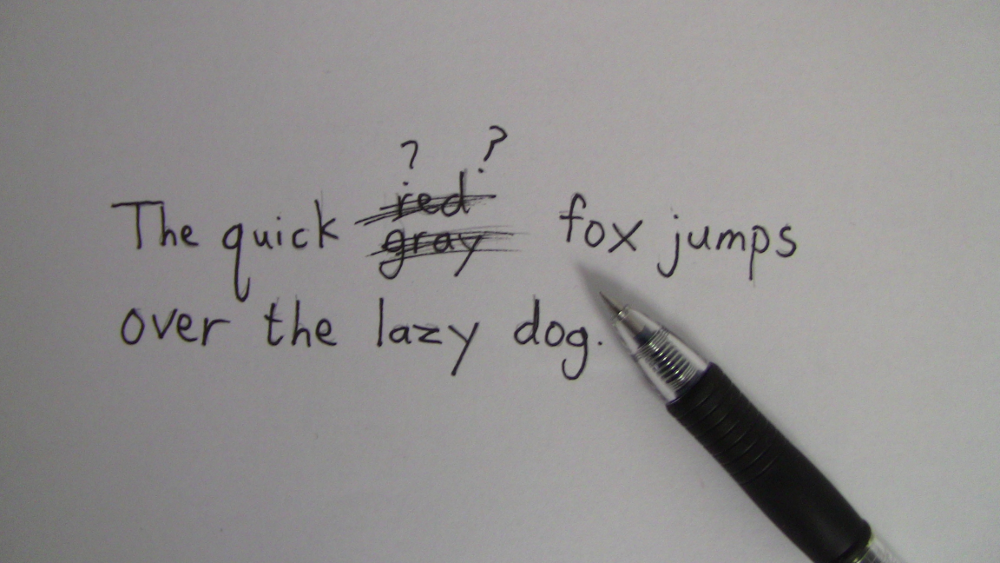 ? ?
red
The quick gray fox jumps
over the lazy dog.